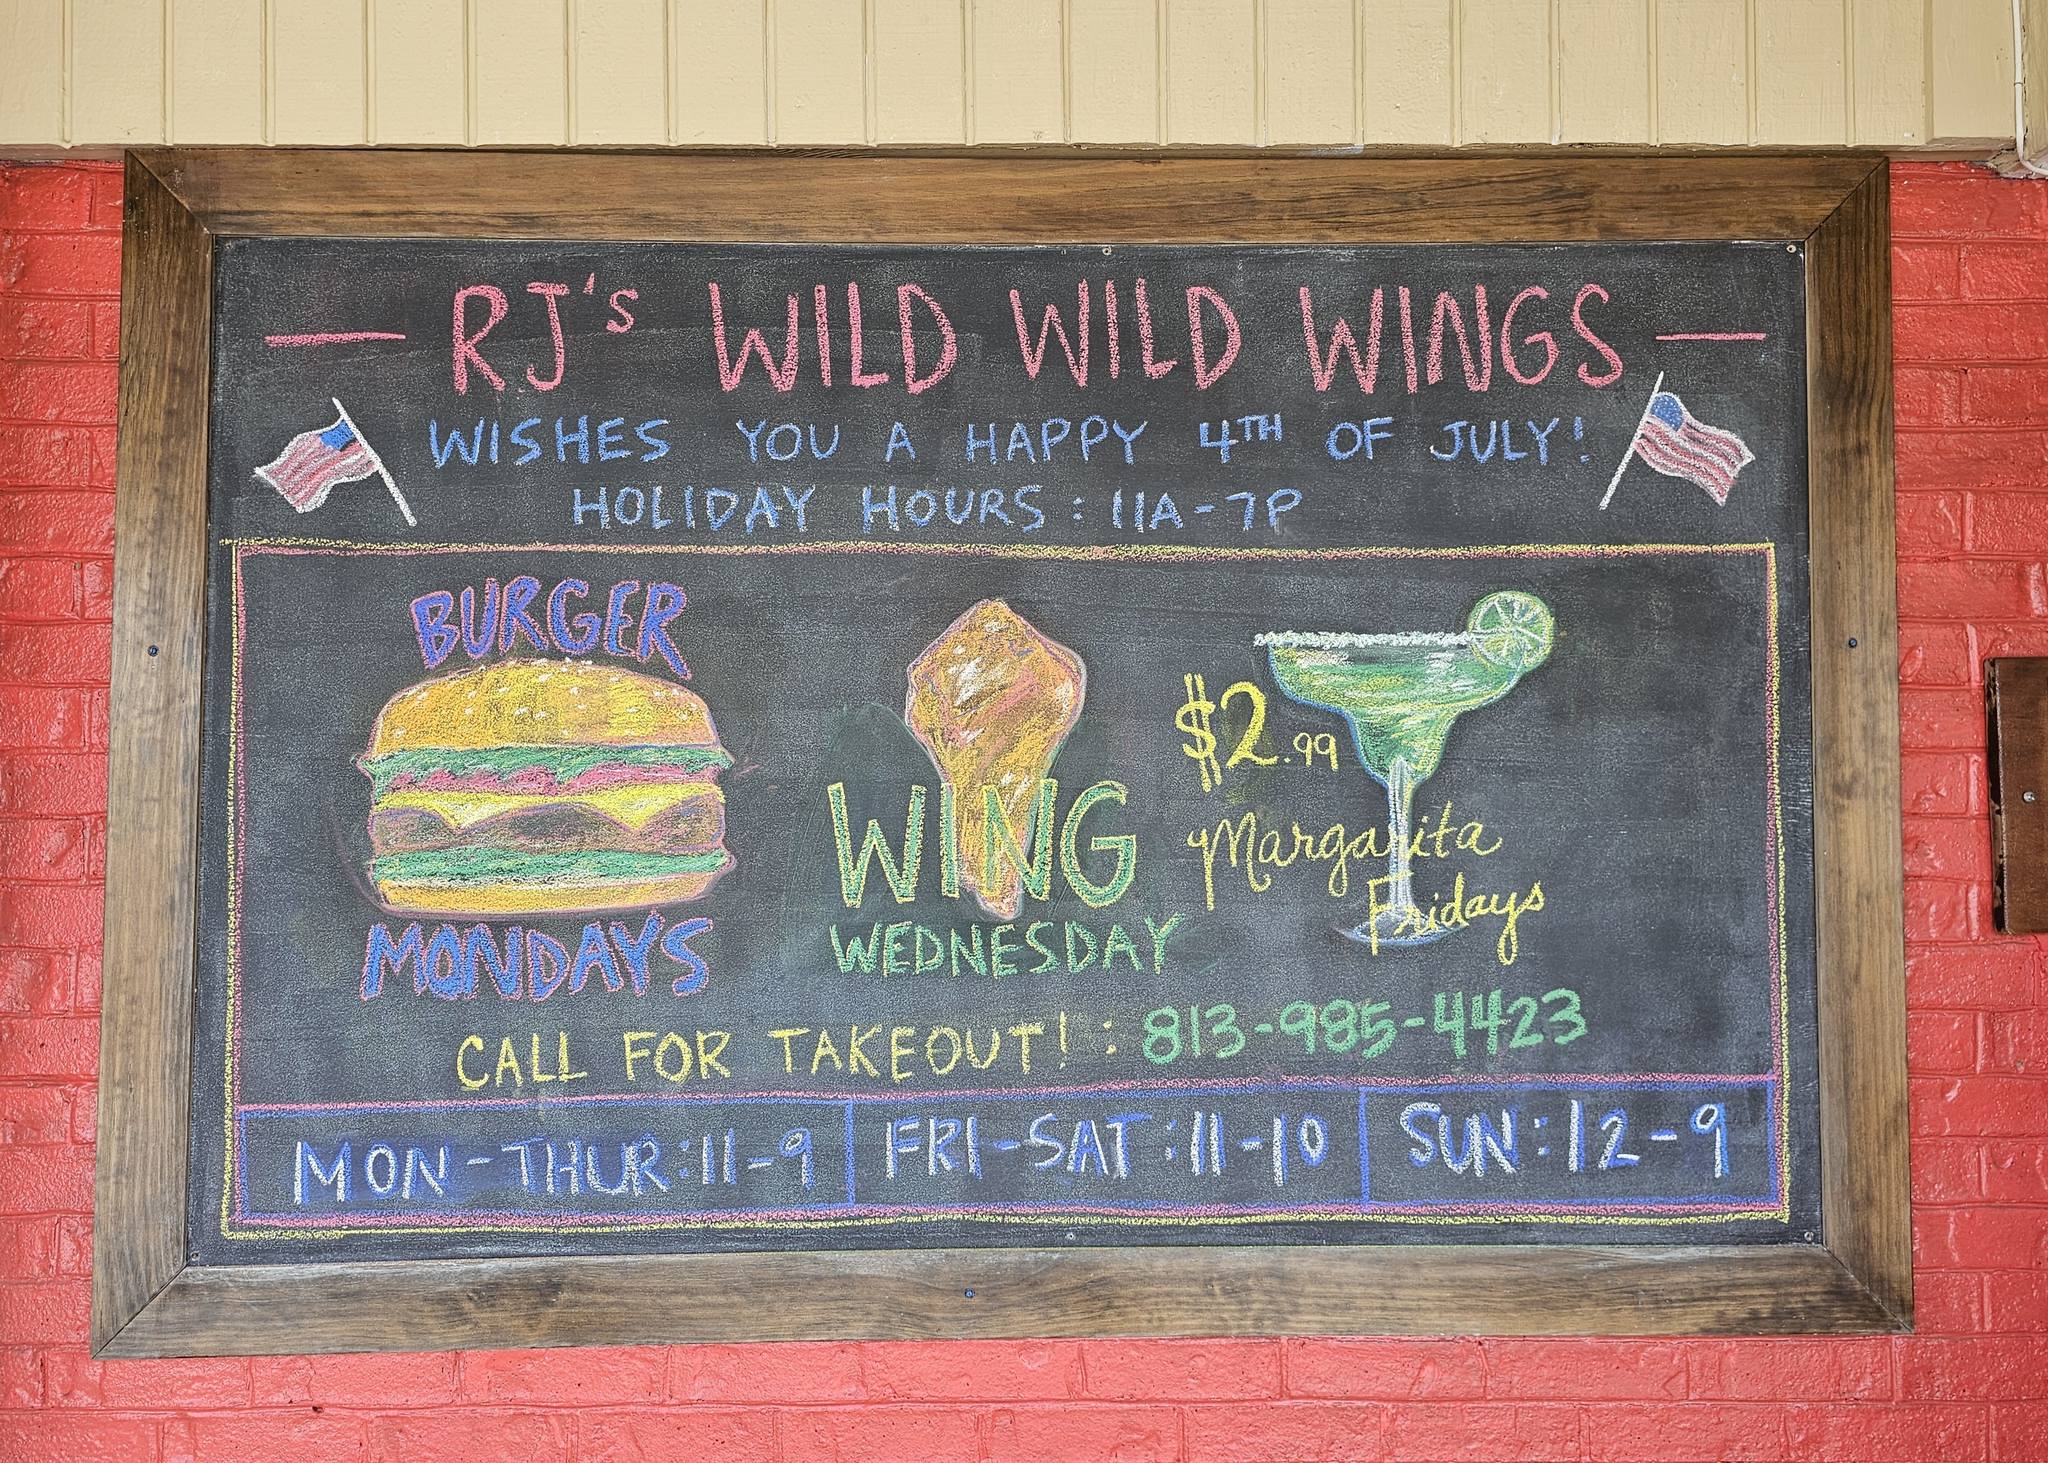 RJ's WILD WILD WINGS
WISHES YOU A HAPPY 4TH OF JULY!
HOLIDAY HOURS: 11A-7P
BURGER
MONDAYS
WING
WEDNESDAY
$2.99
Margarita
Fridays
CALL FOR TAKEOUT! : 813-985-4423
MON-THUR:11-9
FRI-SAT:11-10
SUN:12-9